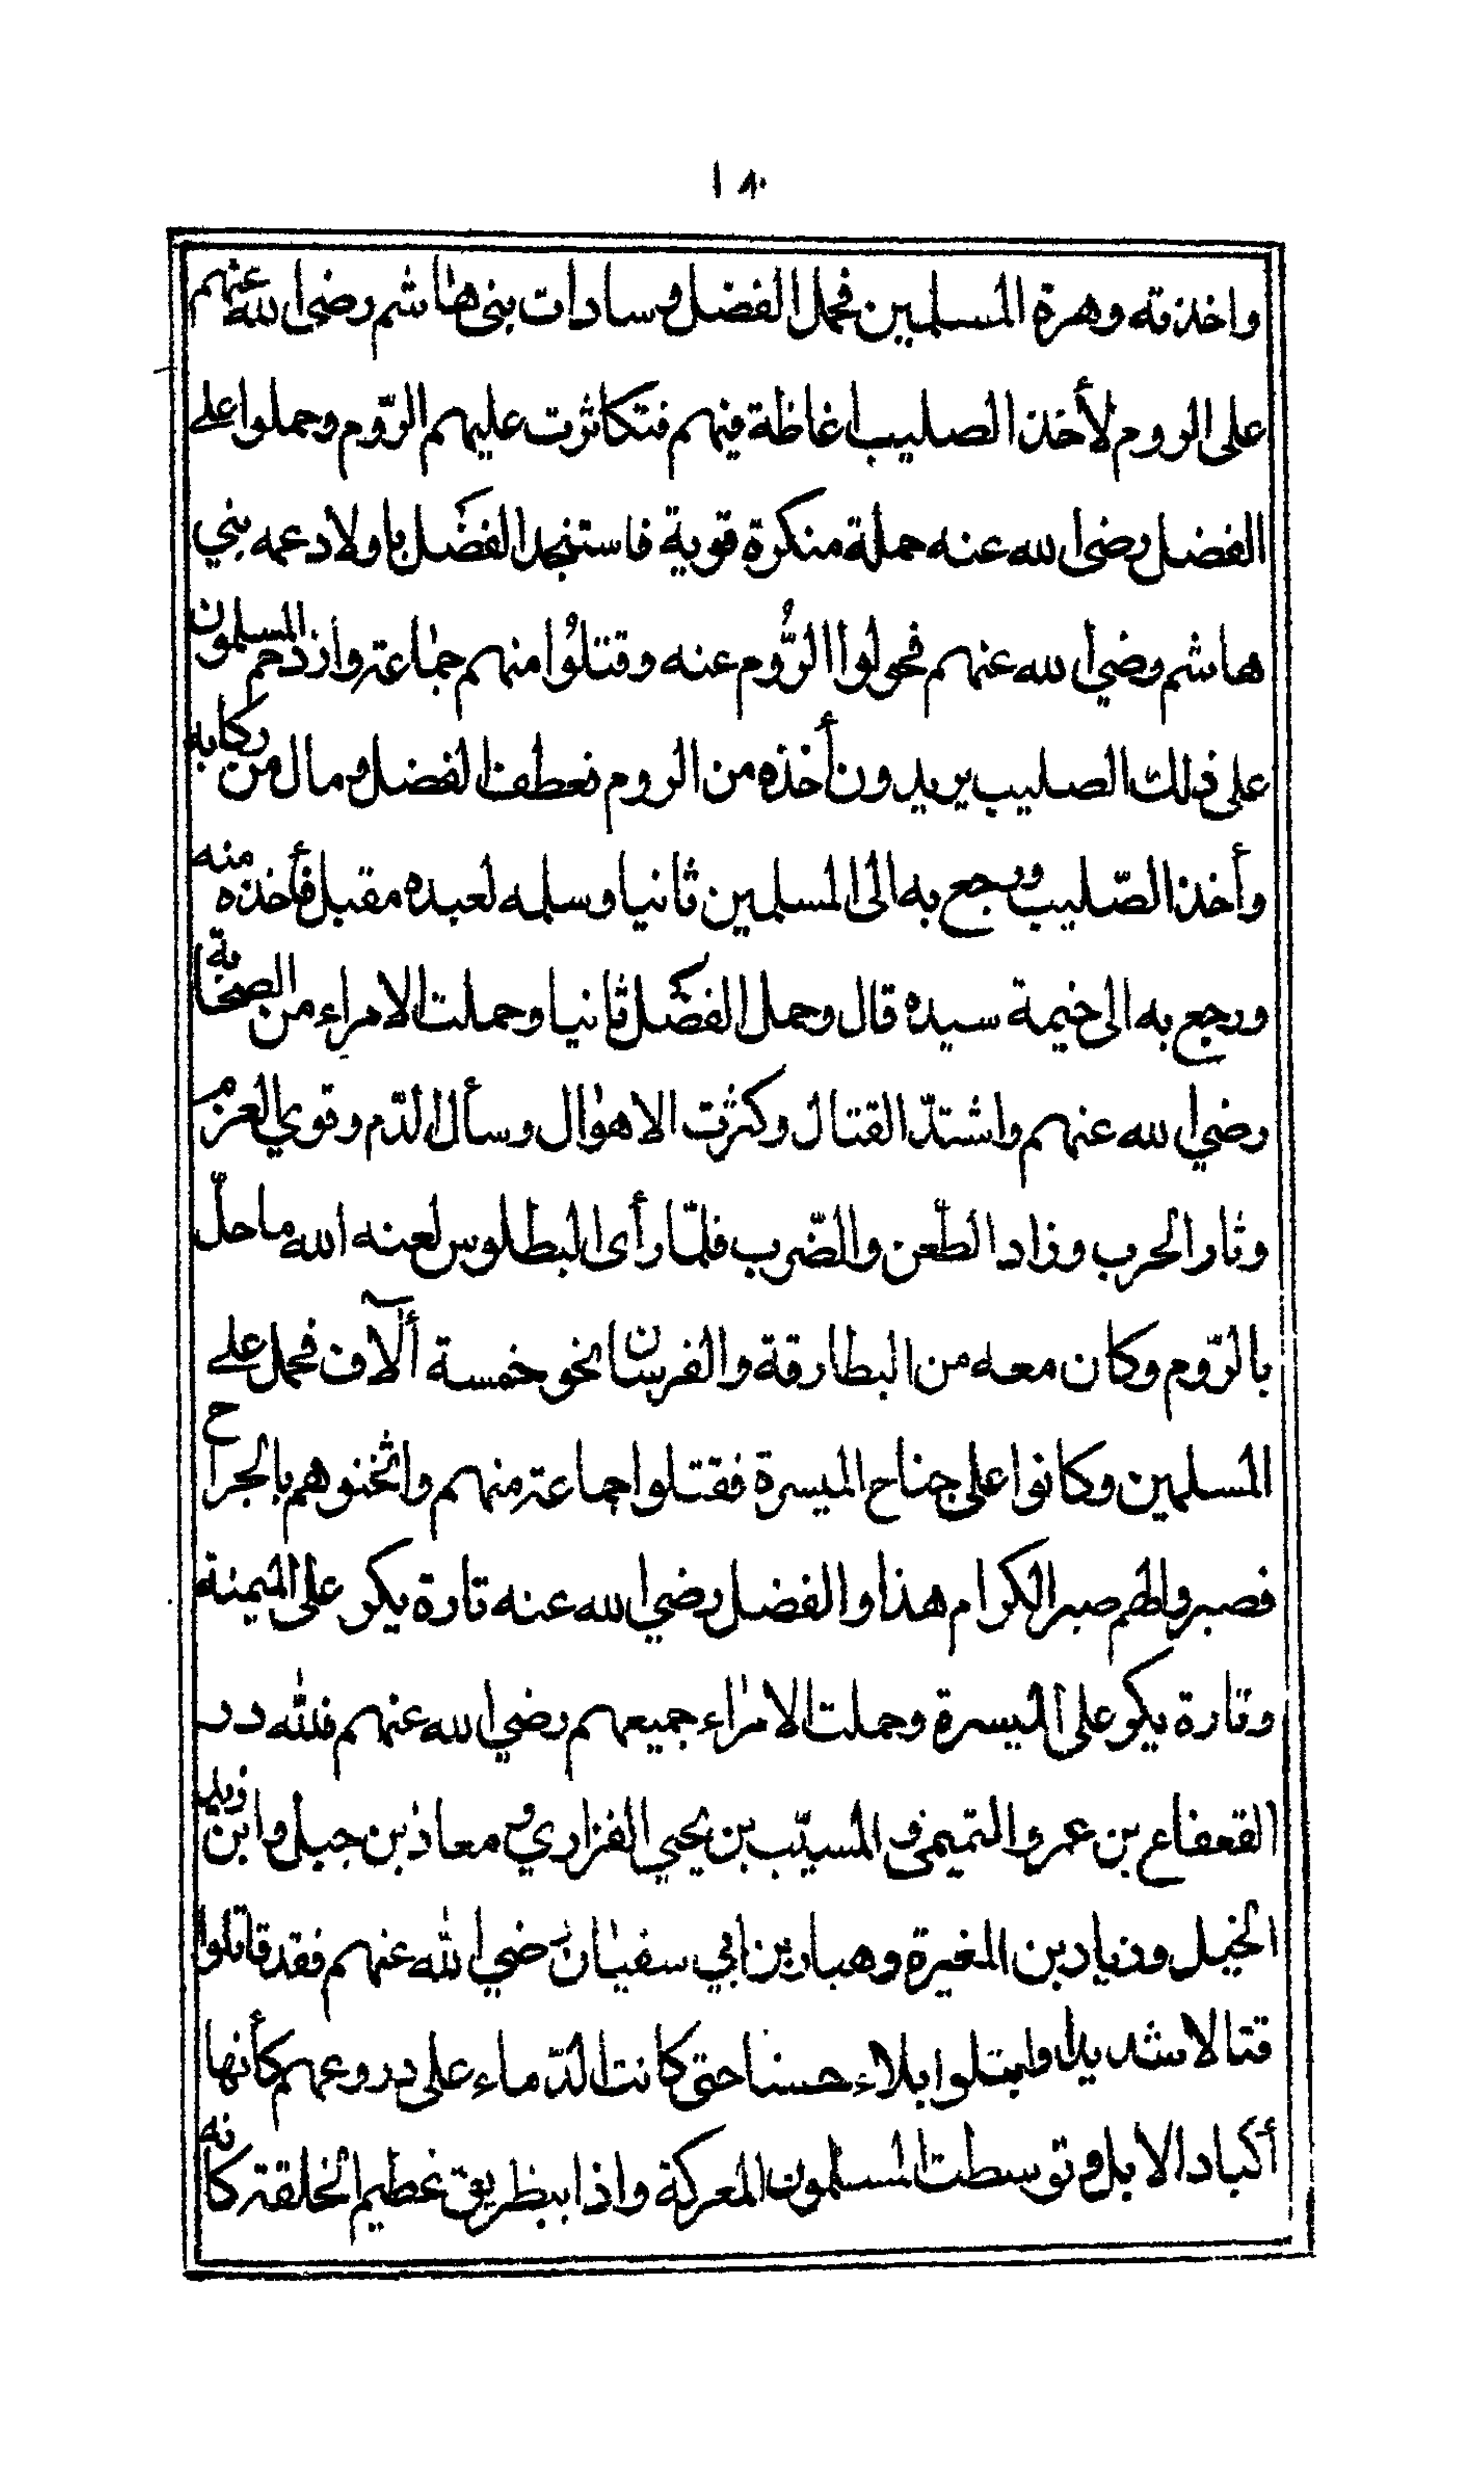 ١٨٠
واخذته وهرة المسلمين فحمل الفضل وسادات بنى هاشم رضى الله عنهم
على الروم لأخذ الصليب اغاظة فيهم فتكاثرت عليهم الرّوم وحملوا على
الفضل رضى الله عنه حملة منكرة قوية فاستنجد الفضل باولاد عمه بني
هاشم رضي الله عنهم فحولوا الرُّوم عنه وقتلُوا منهم جماعة وازدحم المسلمون
على ذلك الصليب يريدون أخذه من الروم فعطف الفضل ومال من ركابه
وأخذ الصّليب ورجع به الى المسلمين ثانيا وسلمه لعبده مقبل فأخذه منه
ورجع به الى خيمة سيده قال وحمل الفضل ثانيا وحملت الامراء من الصحابة
رضي الله عنهم واشتدّ القتال وكثرت الاهوال وسأل الدّم وقوي العزم
وثار الحرب وزاد الطّعن والضّرب فلمّا رأى البطلوس لعنه الله ما حلّ
بالرّوم وكان معه من البطارقة والفرسان نحو خمسة آلاف فحمل على
المسلمين وكانوا على جناح الميسرة فقتلوا جماعة منهم واثخنوهم بالجراح
فصبروا لهم صبر الكرام هذا والفضل رضي الله عنه تارة يكر على الميمنة
وتارة يكر على الميسرة وحملت الامراء جميعهم رضي الله عنهم فلله در
القعقاع بن عمرو التميمي والمسيّب بن يحيي الفزاري ومعاذ بن جبل وابن زيد
الخيل وزياد بن المغيرة وهبار بن ابي سفيان رضي الله عنهم فقد قاتلوا
قتالا شديدا وابتلوا بلاء حسنا حتى كانت الدّماء على دروعهم كأنها
أكباد الابل وتوسطت المسلمون المعركة واذا ببطريق عظيم الخلقة كانه